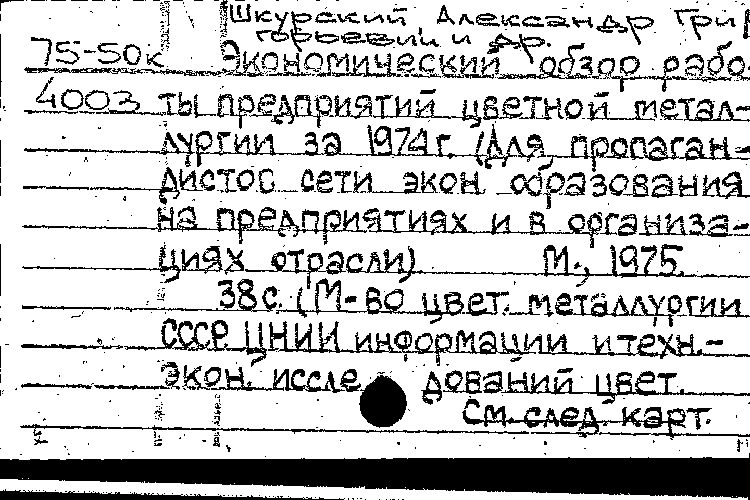 Шкурский Александр Гри
горьевич и др.
75-50к Экономический обзор рабо-
4003 ты предприятий цветной метал-
лургии за 1974 г. (Для пропаган-
дистов сети экон. образования
на предприятиях и в организа-
циях отрасли). М., 1975.
38 с. (М-во цвет. металлургии
СССР. ЦНИИ информации и техн.-
экон. иссле дований цвет.
См. след. карт.